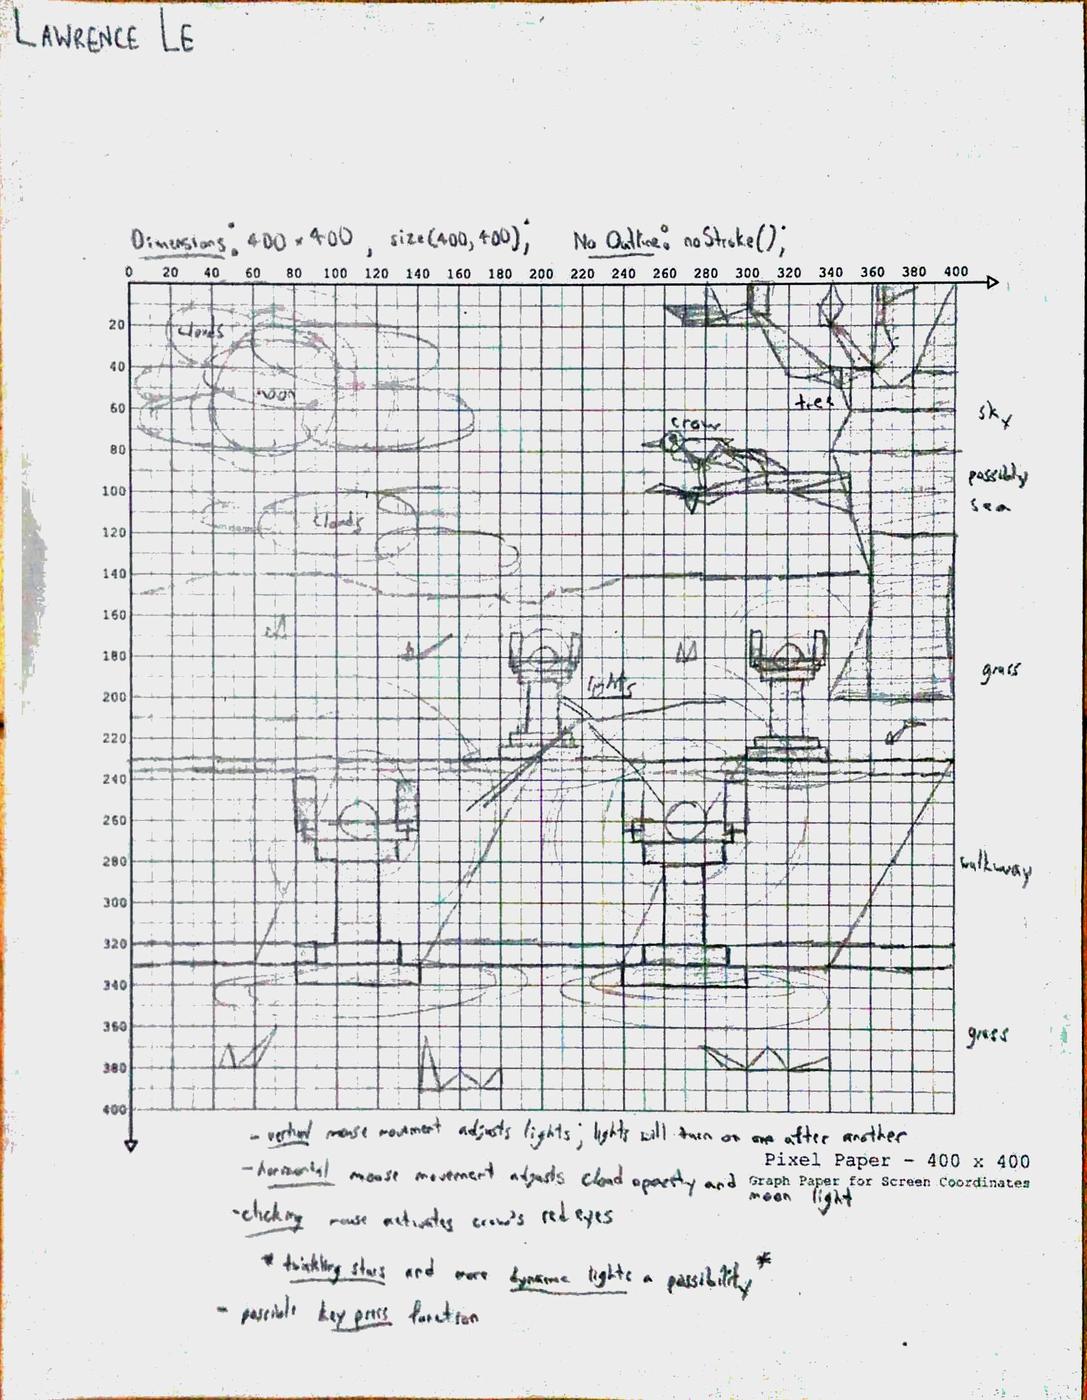 LAWRENCE LE
Dimensions: 400 × 400, size(400,400); No Outline: noStroke();
0 20 40 60 80 100 120 140 160 180 200 220 240 260 280 300 320 340 360 380 400
20
clouds
40
moon
tree
60
sky
crow
80
possibly
100
sea
clouds
120
140
160
180
grass
lights
200
220
240
260
280
walkway
300
320
340
360
grass
380
400
- vertical mouse movement adjusts lights; lights will turn on one after another
Pixel Paper - 400 x 400
- horizontal mouse movement adjusts cloud opacity and
Graph Paper for Screen Coordinates
moon light
- clicking mouse activates crow's red eyes
* twinkling stars and more dynamic lights a possibility *
- possible key press function